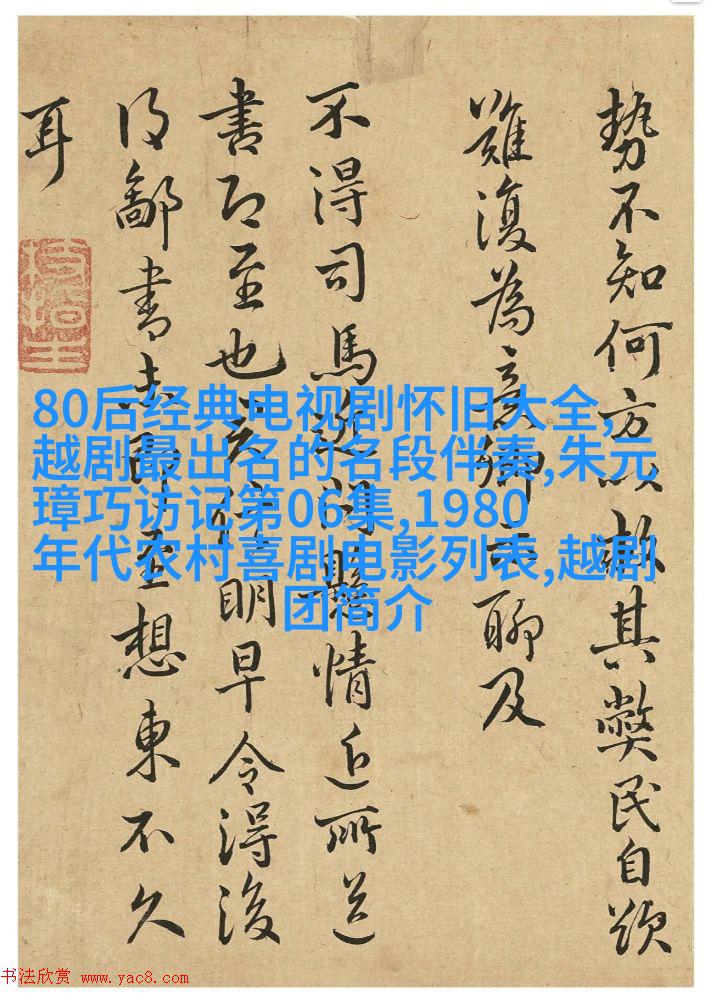 勢不知何方以救其弊民自
難復為意卿示聊及
不得司馬問懸情近所送
書即至也明早令得復
得鄙書至想東不久
耳
80后经典电视剧怀旧大全,
越剧最出名的名段伴奏,朱元
璋巧访记第06集,1980
年代农村喜剧电影列表,越剧
团简介
书法欣赏 www.yac8.com